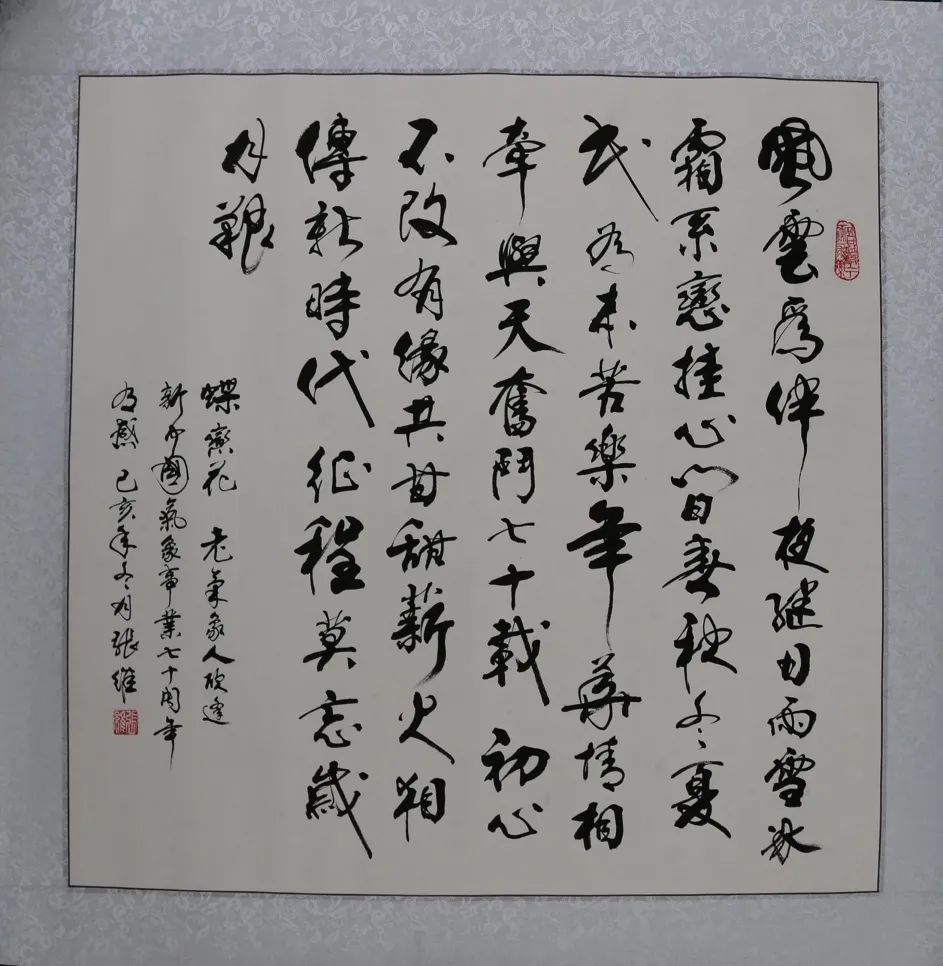 風雲爲伴夜繼日雨雪冰
霜系戀挂心間春秋冬夏
為本苦樂年華情相
牽與天奮鬥七十載初心
不改有緣共甘甜薪火相
傳新時代征程莫忘歲
月艱
蝶戀花 老氣象人欣逢
新中國氣象事業七十周年
有感 己亥年冬月張維